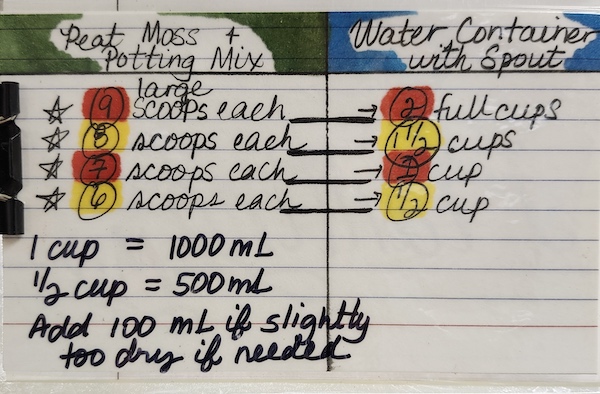 Peat Moss +
Potting Mix
Water Container
with Spout
☆ 9 large scoops each → 2 full cups
☆ 8 scoops each → 1 1/2 cups
☆ 7 scoops each → 1 cup
☆ 6 scoops each → 1/2 cup
1 cup = 1000 mL
1/2 cup = 500 mL
Add 100 mL if slightly
too dry if needed